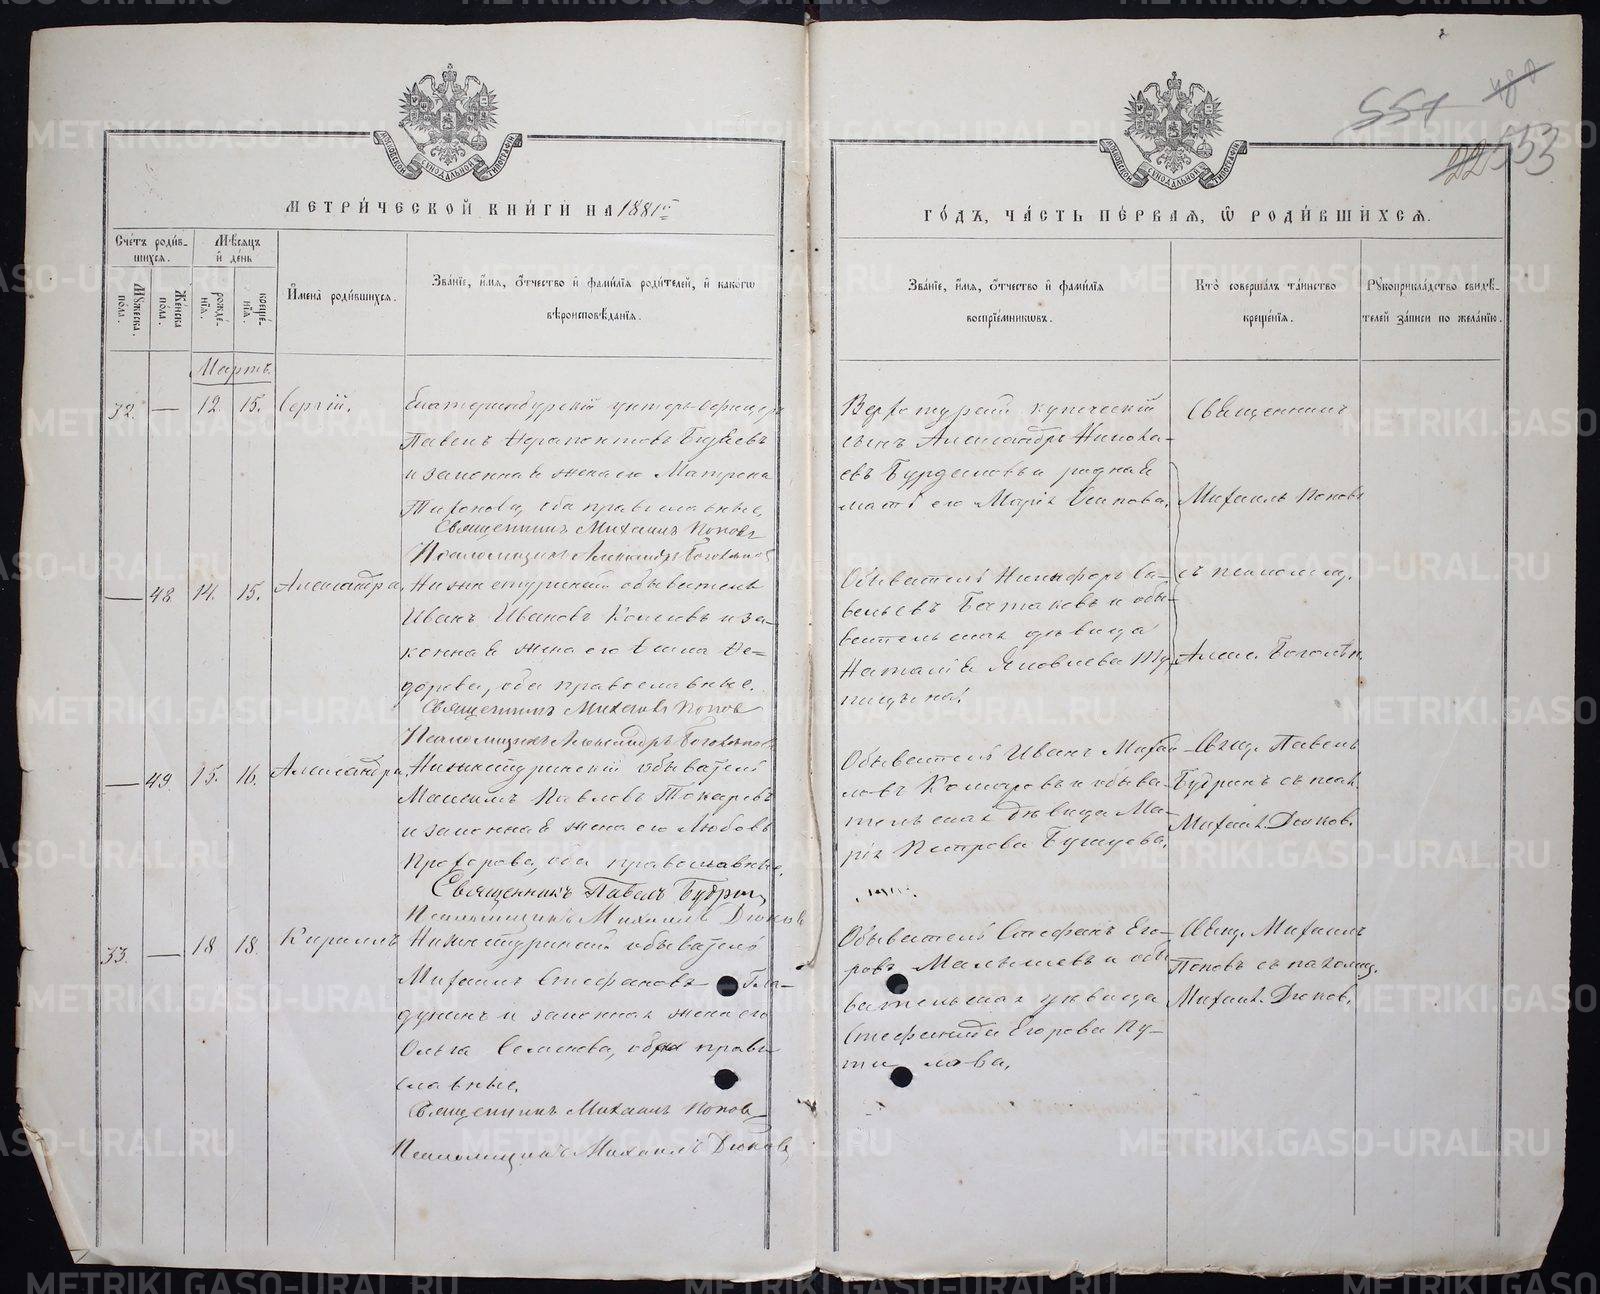 МЕТРИЧЕСКОЙ КНИГИ НА 1881й
ГОДЪ, ЧАСТЬ ПЕРВАЯ, Ѡ РОДИВШИХСЯ.
553
Счетъ родив-
шихся.
Мѣсяцъ
и день
Мужеска
пола.
Женска
пола.
рожде-
нїя.
креще-
нїя.
Имена родившихся.
Званїе, имя, отчество и фамилїя родителей, и какогѡ
вѣроисповѣданїя.
Званїе, имя, отчество и фамилїя
воспрїемниковъ.
Кто совершалъ таинство
крещенїя.
Рукоприкладство свидѣ-
телей записи по желанїю.
Мартъ.
32. — 12. 15. Сергій.
Екатеринбурскій унтеръ-офицеръ
Павелъ Ферапонтовъ
и законная жена его Матрена
Тихонова, оба православные.
Священникъ Михаилъ Поповъ
Псаломщикъ Александръ
Верхотурскій купеческій
сынъ Александръ Никола-
евъ Бурдаковъ и родная
мать его Марія Осипова.
Священникъ
Михаилъ Поповъ
съ псаломщ.
— 48. 14. 15. Александра.
обыватель
Иванъ Ивановъ и за-
конная жена его Ѳе-
дорова, оба православные.
Священникъ Михаилъ Поповъ
Псаломщикъ Александръ
Обыватель Никифоръ Са-
вельевъ и обы-
вательская дѣвица
Наталія Яковлева
— 49. 15. 16. Александра
Нижнетуринскій обыватель
Максимъ Павловъ Токаревъ
и законная жена его Любовь
Прохорова, оба православные.
Священникъ Павелъ Будринъ
Псаломщикъ Михаилъ Дюковъ
Обыватель Иванъ Михаи-
ловъ и обыва-
тельская дѣвица Ма-
рія Петрова
Свящ. Павелъ
Будринъ съ псал.
Михаил. Дюков.
33. — 18 18. Кириллъ
обыватель
Михаилъ Стефановъ Гла-
дунинъ и законная жена его
Ольга Семенова, оба право-
славные.
Священникъ Михаилъ Поповъ
Псаломщикъ Михаилъ Дюковъ
Обыватель Стефанъ Его-
ровъ Малышевъ и обы-
вательская дѣвица
Стефанида Егорова Пу-
тилова.
Свящ. Михаилъ
Поповъ съ псаломщ.
Михаил. Дюков.
METRIKI.GASO-URAL.RU